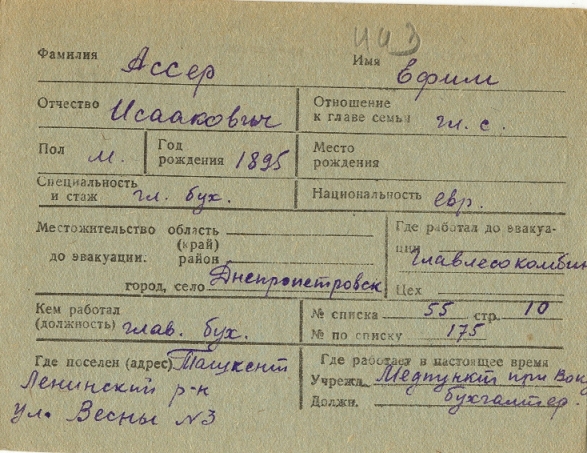 ИИЭ
Фамилия Ассер Имя Ефим
Отчество Исаакович Отношение к главе семьи гл. с.
Пол м. Год рождения 1895 Место рождения
Специальность и стаж гл. бух. Национальность евр.
Местожительство область Где работал до эвакуа-
(край) ции Главлесокомбин
до эвакуации. район
город, село Днепропетровск Цех
Кем работал № списка 55 стр. 10
(должность) глав. бух. № по списку 175
Где поселен (адрес) Ташкент Где работает в настоящее время
Ленинский р-н Учрежд. Медпункт при Вокз
ул. Весны №3 Должн. бухгалтер.